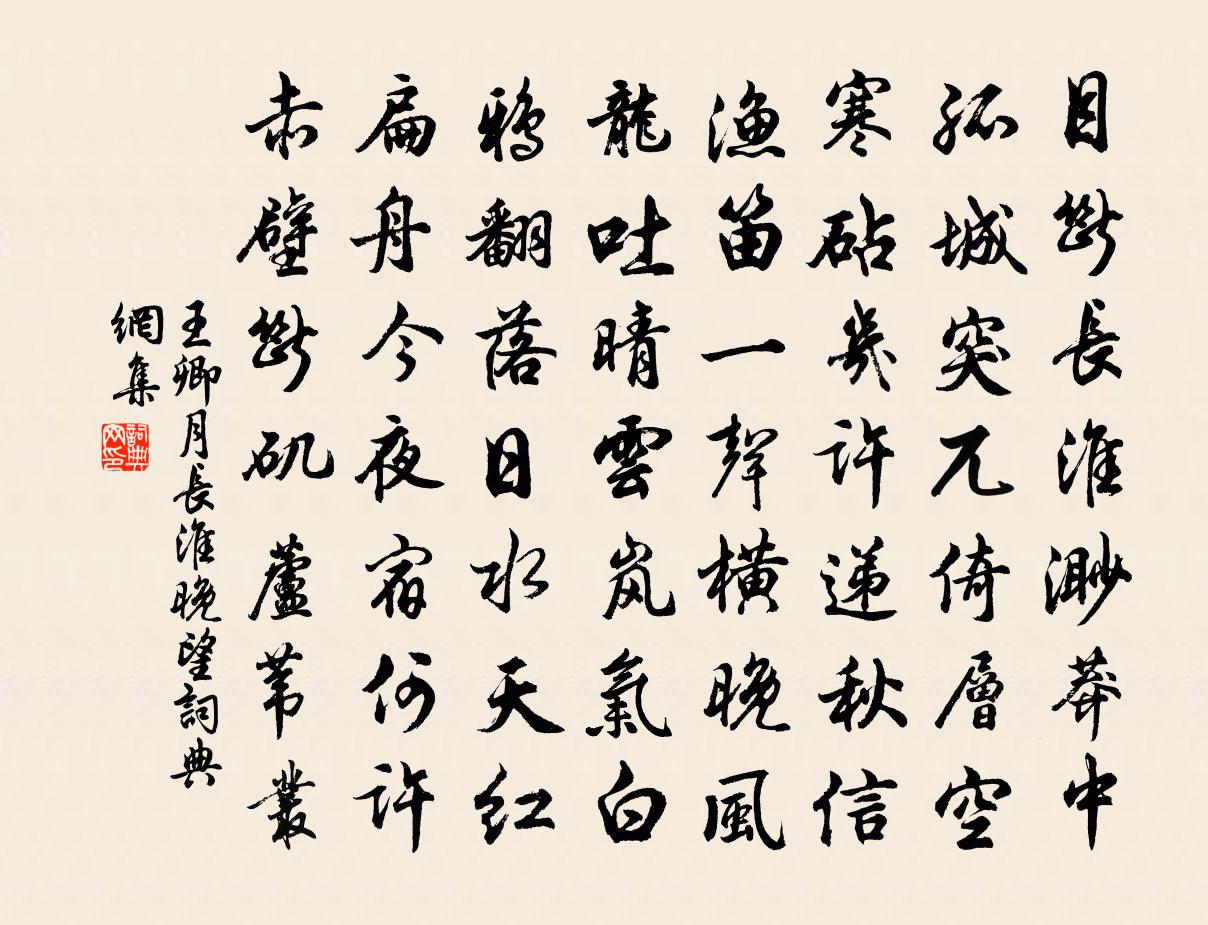 目斷長淮渺莽中
孤城突兀倚層空
寒砧幾許递秋信
漁笛一聲橫晚風
龍吐晴雲岚氣白
鴉翻落日水天紅
扁舟今夜宿何許
赤壁斷矶蘆苇叢
王卿月長淮晚望詞典
網集
詞典
网印